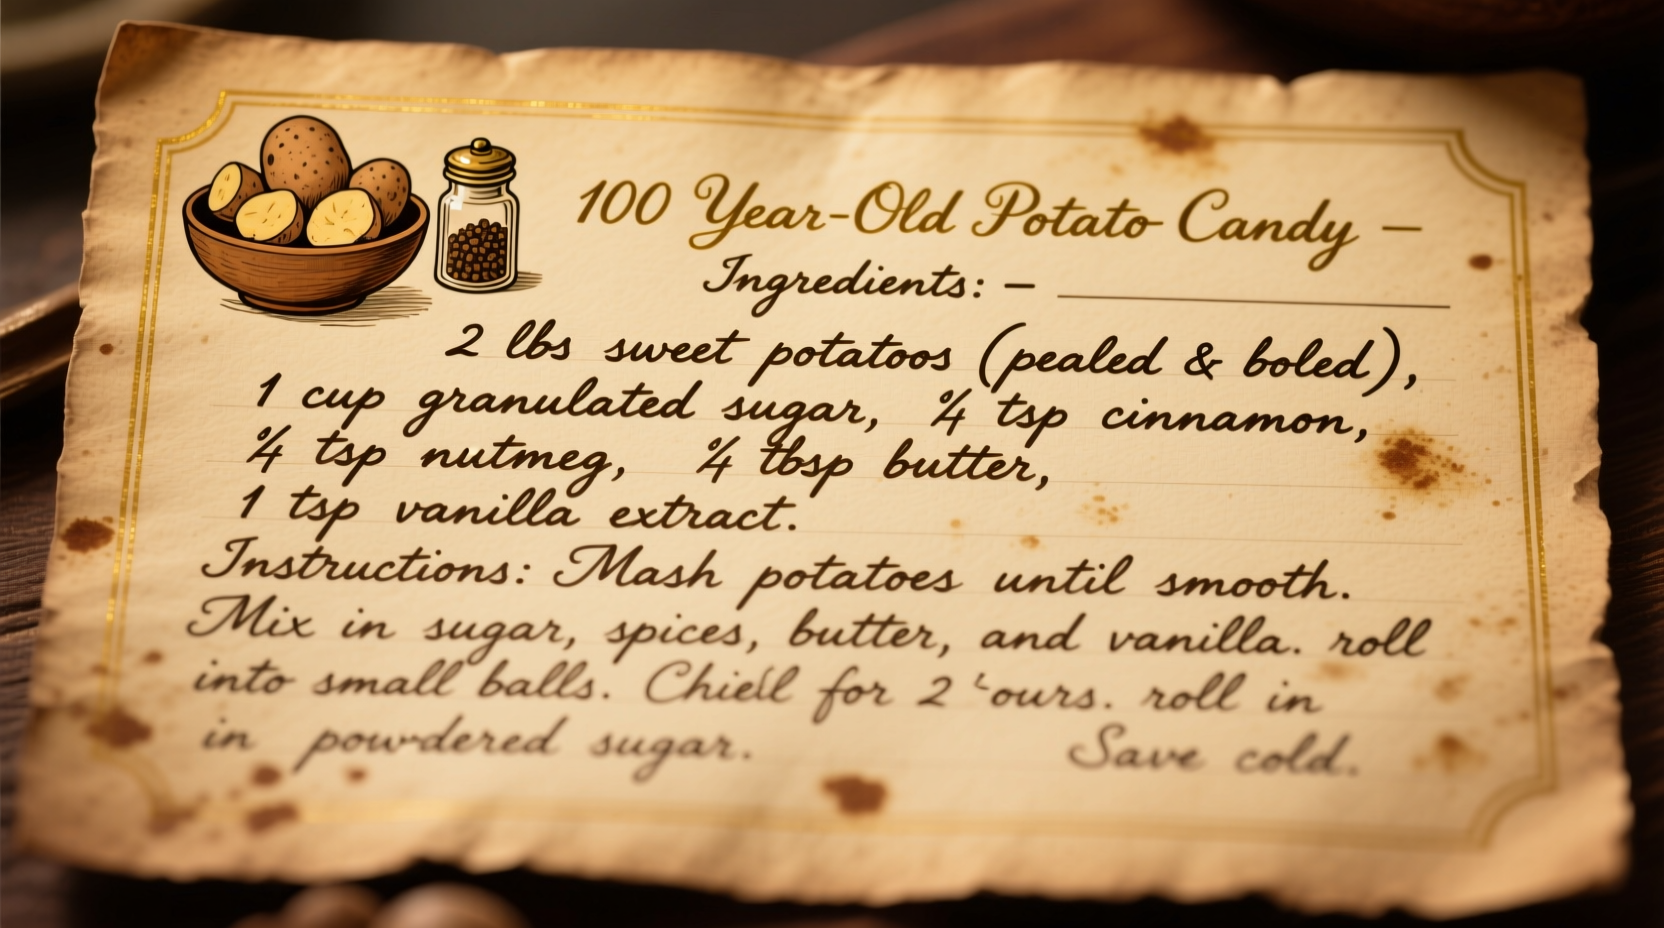 100 Year-Old Potato Candy —
Ingredients: —
2 lbs sweet potatoos (pealed & boled),
1 cup granulated sugar, ¼ tsp cinnamon,
¼ tsp nutmeg, ¼ tbsp butter,
1 tsp vanilla extract.
Instructions: Mash potatoes until smooth.
Mix in sugar, spices, butter, and vanilla. roll
into small balls. for 2 'ours. roll in
in powdered sugar. Save cold.